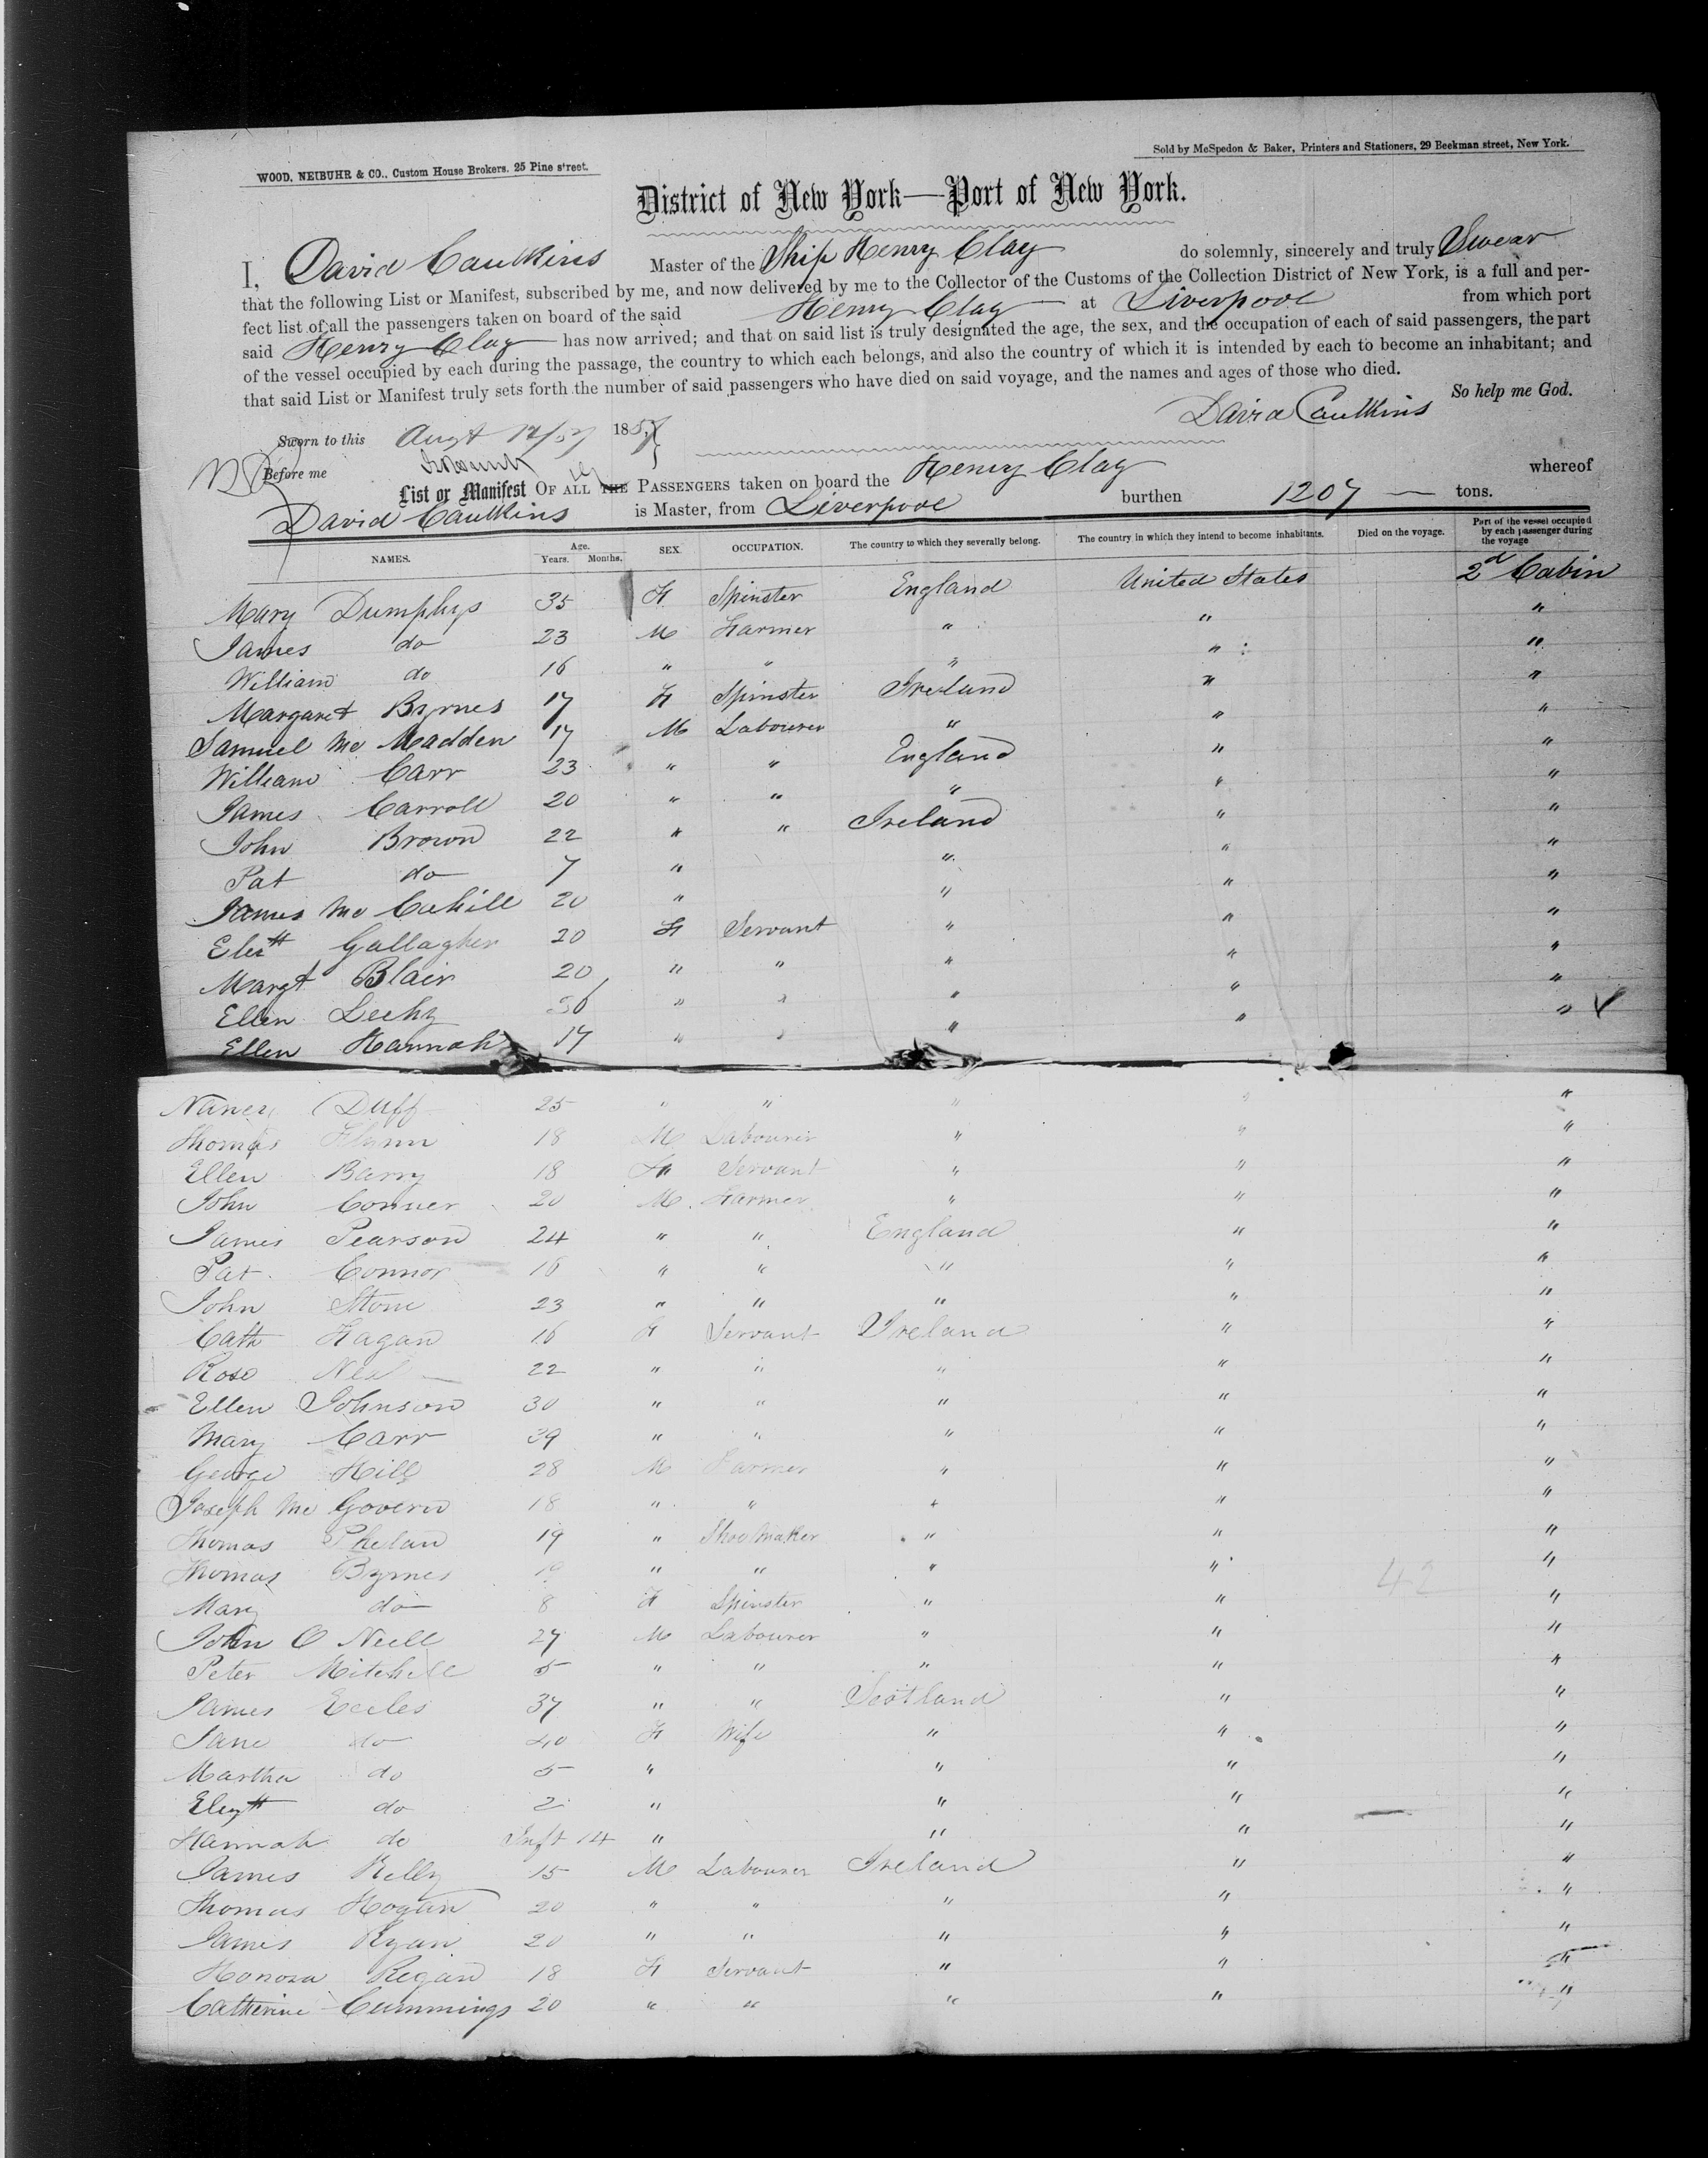 WOOD, NEIBUHR & CO., Custom House Brokers. 25 Pine street.
Sold by McSpedon & Baker, Printers and Stationers, 29 Beekman street, New York.
District of New York—Port of New York.
I, David Caulkins Master of the Ship Henry Clay do solemnly, sincerely and truly Swear
that the following List or Manifest, subscribed by me, and now delivered by me to the Collector of the Customs of the Collection District of New York, is a full and per-
fect list of all the passengers taken on board of the said Henry Clay at Liverpool from which port
said Henry Clay has now arrived; and that on said list is truly designated the age, the sex, and the occupation of each of said passengers, the part
of the vessel occupied by each during the passage, the country to which each belongs, and also the country of which it is intended by each to become an inhabitant; and
that said List or Manifest truly sets forth the number of said passengers who have died on said voyage, and the names and ages of those who died.
So help me God.
David Caulkins
Sworn to this Augt 12/57 1857
Before me
List or Manifest OF ALL THE PASSENGERS taken on board the Henry Clay whereof
David Caulkins is Master, from Liverpool burthen 1207 — tons.
NAMES. Age. Years. Months. SEX. OCCUPATION. The country to which they severally belong. The country in which they intend to become inhabitants. Died on the voyage. Part of the vessel occupied by each passenger during the voyage
Mary Dumphys 35 F Spinster England United States 2d Cabin
James do 23 M Farmer " " "
William do 16 " " " " "
Margaret Byrnes 17 F Spinster Ireland " "
Samuel Mc Madden 17 M Labourer " " "
William Carr 23 " " England " "
James Carroll 20 " " " " "
John Brown 22 " " Ireland " "
Pat do 7 " " " "
James Mc Cahill 20 " " " "
Elizth Gallagher 20 F Servant " " "
Margt Blair 20 " " " " "
Ellen Leehy 36 " " " " "
Ellen Hannah 17 " " " " "
Nancy Duff 25 " " " " "
Thomas Flynn 18 M Labourer " " "
Ellen Barry 18 F Servant " " "
John Conner 20 M Farmer " " "
James Pearson 24 " " England " "
Pat Connor 16 " " " " "
John Stone 23 " " " " "
Cath Fagan 16 F Servant Ireland " "
Rose Neil 22 " " " " "
Ellen Johnson 30 " " " " "
Mary Carr 39 " " " " "
George Hill 28 M Farmer " " "
Joseph Mc Govern 18 " " " " "
Thomas Phelan 19 " Shoemaker " " "
Thomas Byrnes " " " " "
Mary do 8 F Spinster " " "
42
John O Neill 27 M Labourer " " "
Peter Mitchell 5 " " " " "
James Eccles 37 " " Scotland " "
Jane do 40 F Wife " " "
Martha do 5 " " " "
Elizth do 2 " " " "
Hannah do Inft 14 " " " "
James Kelly 15 M Labourer Ireland " "
Thomas Hogan 20 " " " " "
James Ryan 20 " " " " "
Honora Regan 18 F Servant " " "
Catherine Cummings 20 " " " " "